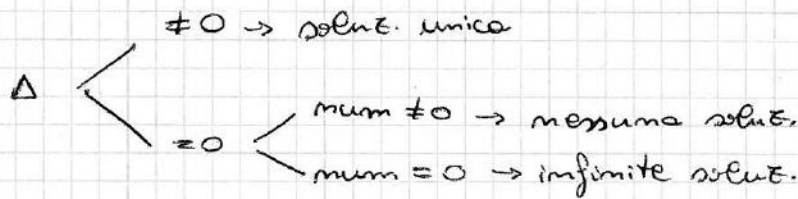 ≠ 0 → soluz. unica
Δ
= 0
num ≠ 0 → nessuna soluz.
num = 0 → infinite soluz.